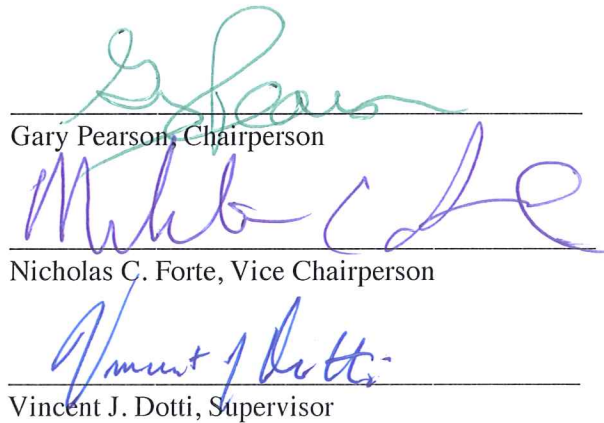 Gary Pearson
Gary Pearson, Chairperson
Nicholas C. Forte, Vice Chairperson
Vincent J Dotti
Vincent J. Dotti, Supervisor